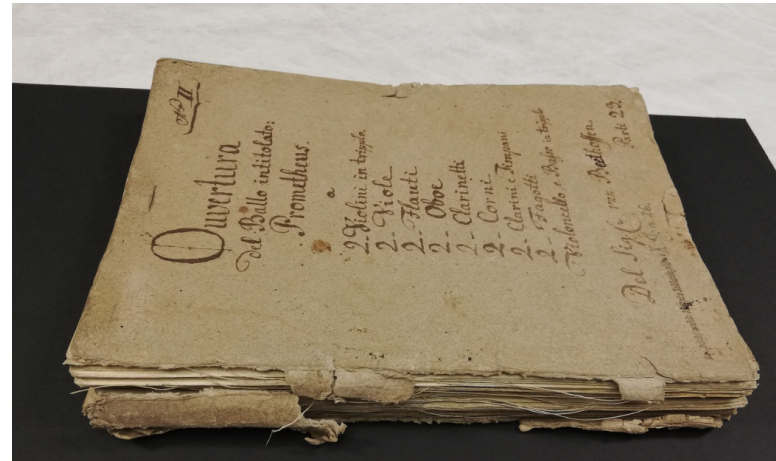 No 11
Ouvertura
del Ballo intitolato:
Prometheus.
a
2. Violini in tripplo.
2- Viole
2- Flauti
2- Oboe
2- Clarinetti
2- Corni
2- Clarini e Timpani
2- Fagotti
Violoncello e Basso in tripplo
Del Sigl: van Bedthoffen.
Role 22.